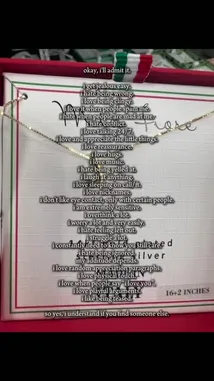 okay, i'll admit it.
i get jealous easy.
i hate being wrong.
i love being clingy.
i hate when people are mad at me.
i hate conflict.
i love talking 24/7.
i love and appreciate the little things.
i love reassurance.
i love hugs.
i love music.
i hate being yelled at.
i laugh at anything.
i love sleeping on call/ft.
i love nicknames.
i don't like eye contact, only with certain people.
i am extremely sensitive.
i overthink a lot.
i worry a lot and very easily.
i hate feeling left out.
i struggle a lot.
i constantly need to know you still care.
i hate being ignored.
my attitude depends.
i love random appreciation paragraphs.
i love physical touch.
i love when people say "i love you".
i love playful arguments.
i like being teased.
16+2 INCHES
so yes, i understand if you find someone else.